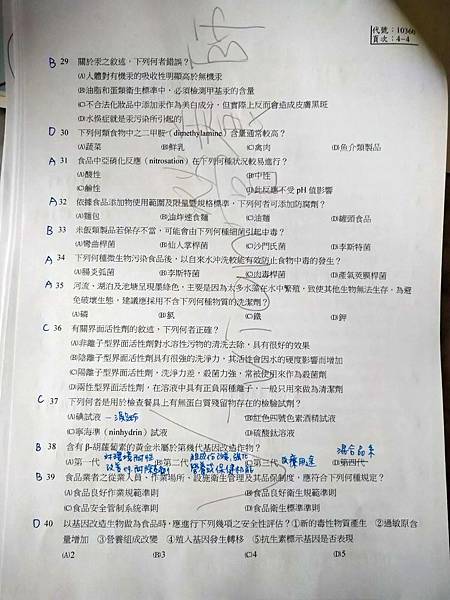 代號：10360
頁次：4-4
B 29 關於汞之敘述，下列何者錯誤？
(A)人體對有機汞的吸收性明顯高於無機汞
(B)油脂和蛋類衛生標準中，必須檢測甲基汞的含量
(C)不合法化妝品中添加汞作為美白成分，但實際上反而會造成皮膚黑斑
(D)水俁症就是汞污染所引起的
D 30 下列何類食物中之二甲胺（dimethylamine）含量通常較高？
(A)蔬菜 (B)鮮乳 (C)禽肉 (D)魚介類製品
A 31 食品中亞硝化反應（nitrosation）在下列何種狀況較易進行？
(A)酸性 (B)中性
(C)鹼性 (D)此反應不受 pH 值影響
A 32 依據食品添加物使用範圍及限量暨規格標準，下列何者可添加防腐劑？
(A)麵包 (B)油炸速食麵 (C)油麵 (D)罐頭食品
B 33 米飯類製品若保存不當，可能會由下列何種細菌引起中毒？
(A)彎曲桿菌 (B)仙人掌桿菌 (C)沙門氏菌 (D)李斯特菌
A 34 下列何種微生物污染食品後，以自來水沖洗較能有效防止食物中毒的發生？
(A)腸炎弧菌 (B)李斯特菌 (C)肉毒桿菌 (D)產氣莢膜桿菌
A 35 河流、湖泊及池塘呈現墨綠色，主要是因為太多水藻在水中繁殖，致使其他生物無法生存，為避
免破壞生態，建議應採用不含下列何種物質的洗潔劑？
(A)磷 (B)氯 (C)鐵 (D)鉀
C 36 有關界面活性劑的敘述，下列何者正確？
(A)非離子型界面活性劑對水溶性污物的清洗去除，具有很好的效果
(B)陰離子型界面活性劑具有很強的洗淨力，其活性會因水的硬度影響而增加
(C)陽離子型界面活性劑，洗淨力差，殺菌力強，常被使用來作為殺菌劑
(D)兩性型界面活性劑，在溶液中具有正負兩種離子，一般只用來做為清潔劑
C 37 下列何者是用於檢查餐具上有無蛋白質殘留物存在的檢驗試劑？
(A)碘試液 - 澱粉 (B)紅色四號色素酒精試液
(C)寧海準（ninhydrin）試液 (D)硫酸鈦溶液
B 38 含有 β-胡蘿蔔素的黃金米屬於第幾代基因改造作物？ 混合品系
(A)第一代 (B)第二代 (C)第三代 醫療用途 (D)第四代
B 39 食品業者之從業人員、作業場所、設施衛生管理及其品保制度，應符合下列何種規定？
(A)食品良好作業規範準則 (B)食品良好衛生規範準則
(C)食品安全管制系統準則 (D)食品衛生標準準則
D 40 以基因改造生物做為食品時，應進行下列幾項之安全性評估？①新的毒性物質產生 ②過敏原含
量增加 ③營養組成改變 ④殖入基因發生轉移 ⑤抗生素標示基因是否表現
(A)2 (B)3 (C)4 (D)5